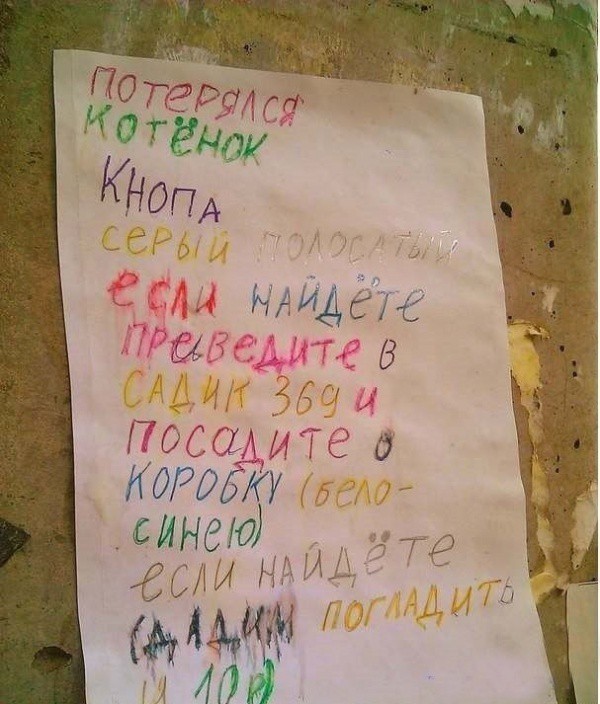 ПОТЕРЯЛСЯ
КОТЁНОК
КНОПА
СЕРЫЙ ПОЛОСАТЫЙ
если НАЙДЁТЕ
ПРЕВЕДИТЕ В
САДИК 369 И
ПОСАДИТЕ В
КОРОБКУ (БЕЛО-
СИНЕЮ)
ЕСЛИ НАЙДЁТЕ
ДАДИМ ПОГЛАДИТЬ
И 10р)